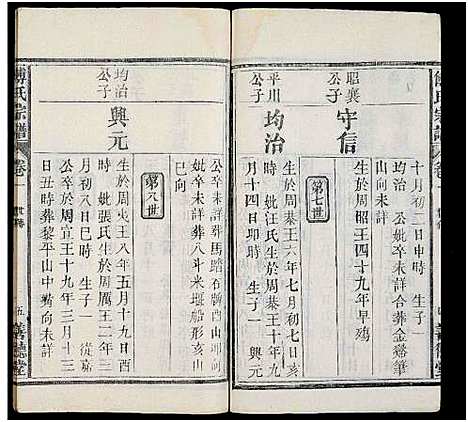 十月初二日申時 生子一
治一 公妣卒未詳合葬金谿筆
山向未詳
昭襄公子
守信
生於周昭王四十九年早殤
第七世
平川公子
均治
生於周恭王六年七月初七日
時 妣汪氏生於周恭王十年
月十四日卯時 生子一 興元
公卒未詳葬馬踏石
妣卒未詳葬八斗米堰船形亥山
巳向
第八世
均治公子
興元
生於周夷王八年五月十九日酉
時 妣張氏生於周厲王二年三
月初八日巳時 生子一 從嘉
公卒於周宣王十九年三月十
日丑時葬黎平山中嘴向未詳
傅氏宗譜
卷一
世傳
五
善德堂